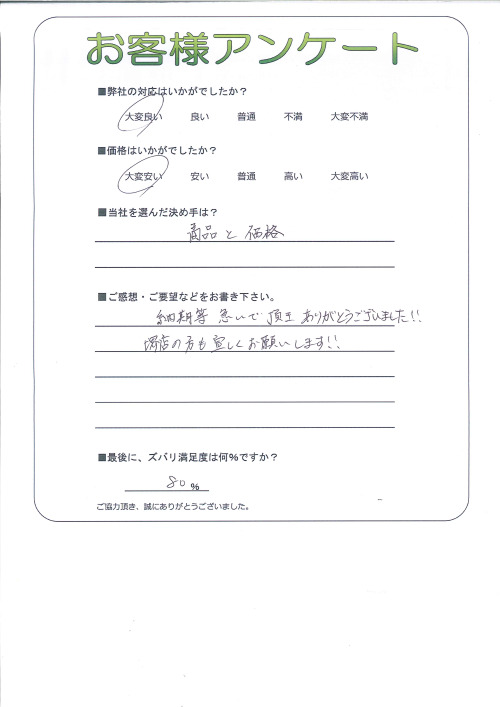 お客様アンケート
■弊社の対応はいかがでしたか？
大変良い 良い 普通 不満 大変不満
■価格はいかがでしたか？
大変安い 安い 普通 高い 大変高い
■当社を選んだ決め手は？
商品と価格
■ご感想・ご要望などをお書き下さい。
納期等 急いで頂き ありがとうございました!!
堺店の方も宜しくお願いします!!
■最後に、ズバリ満足度は何%ですか？
80%
ご協力頂き、誠にありがとうございました。